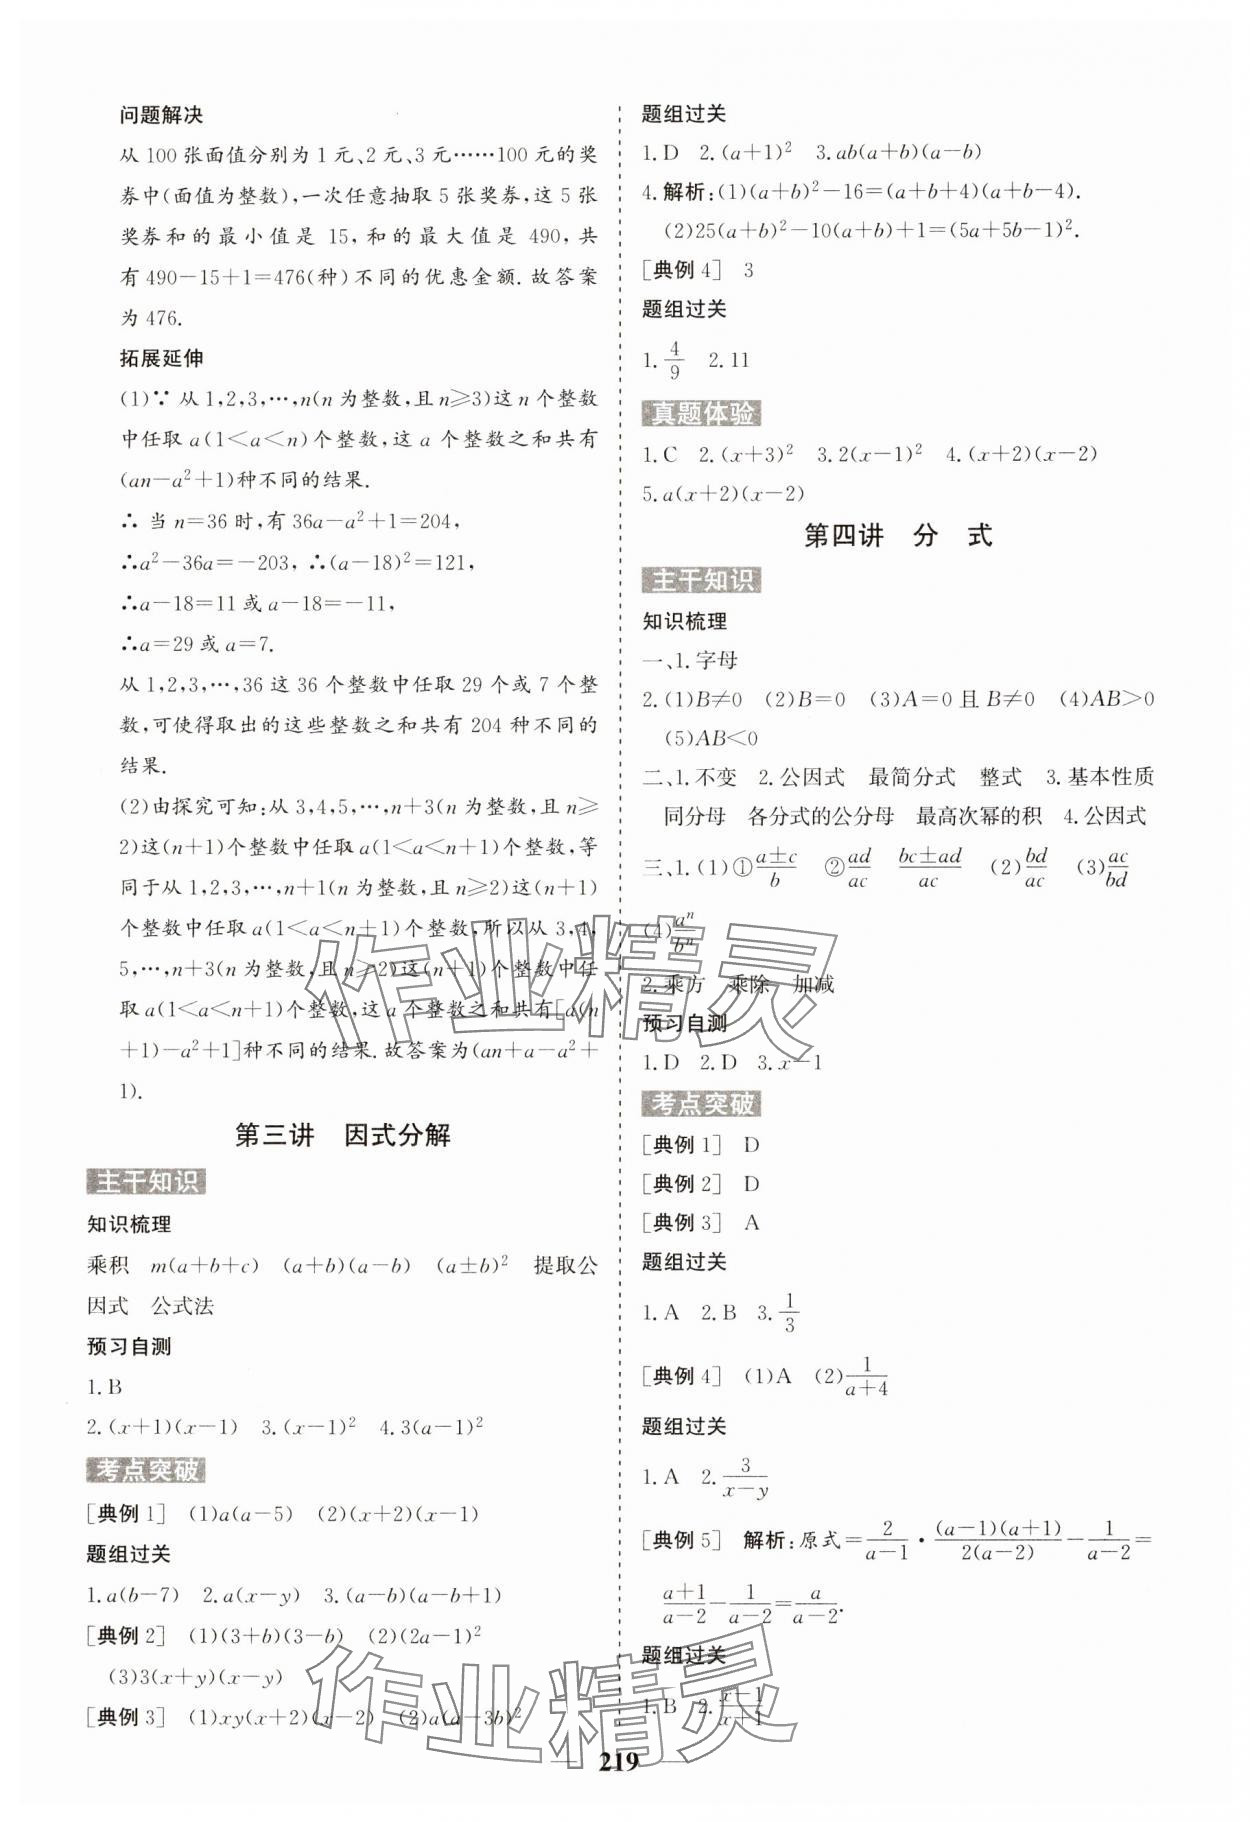 问题解决
从 100 张面值分别为 1 元、2 元、3 元……100 元的奖
券中(面值为整数),一次任意抽取 5 张奖券,这 5 张
奖券和的最小值是 15,和的最大值是 490,共
有 490－15＋1＝476(种)不同的优惠金额. 故答案
为 476.
拓展延伸
(1)∵ 从 1,2,3,…,n(n 为整数,且 n≥3)这 n 个整数
中任取 a(1＜a＜n)个整数,这 a 个整数之和共有
(an－a²＋1)种不同的结果.
∴ 当 n＝36 时,有 36a－a²＋1＝204,
∴a²－36a＝－203, ∴(a－18)²＝121,
∴a－18＝11 或 a－18＝－11,
∴a＝29 或 a＝7.
从 1,2,3,…,36 这 36 个整数中任取 29 个或 7 个整
数,可使得取出的这些整数之和共有 204 种不同的
结果.
(2)由探究可知:从 3,4,5,…,n＋3(n 为整数,且 n≥
2)这(n＋1)个整数中任取 a(1＜a＜n＋1)个整数,等
同于从 1,2,3,…,n＋1(n 为整数,且 n≥2)这(n＋1)
个整数中任取 a(1＜a＜n＋1)个整数,所以从 3,4,
5,…,n＋3(n 为整数,且 n≥2)这(n＋1)个整数中任
取 a(1＜a＜n＋1)个整数,这 a 个整数之和共有[a(n
＋1)－a²＋1]种不同的结果. 故答案为(an＋a－a²＋
1).
第三讲 因式分解
主干知识
知识梳理
乘积 m(a＋b＋c) (a＋b)(a－b) (a±b)² 提取公
因式 公式法
预习自测
1. B
2. (x＋1)(x－1) 3. (x－1)² 4. 3(a－1)²
考点突破
[典例 1] (1)a(a－5) (2)(x＋2)(x－1)
题组过关
1. a(b－7) 2. a(x－y) 3. (a－b)(a－b＋1)
[典例 2] (1)(3＋b)(3－b) (2)(2a－1)²
(3)3(x＋y)(x－y)
[典例 3] (1)xy(x＋2)(x－2) (2)a(a－3b)²
题组过关
1. D 2. (a＋1)² 3. ab(a＋b)(a－b)
4. 解析:(1)(a＋b)²－16＝(a＋b＋4)(a＋b－4).
(2)25(a＋b)²－10(a＋b)＋1＝(5a＋5b－1)².
[典例 4] 3
题组过关
1. 4/9 2. 11
真题体验
1. C 2. (x＋3)² 3. 2(x－1)² 4. (x＋2)(x－2)
5. a(x＋2)(x－2)
第四讲 分 式
主干知识
知识梳理
一、1. 字母
2. (1)B≠0 (2)B＝0 (3)A＝0 且 B≠0 (4)AB＞0
(5)AB＜0
二、1. 不变 2. 公因式 最简分式 整式 3. 基本性质
同分母 各分式的公分母 最高次幂的积 4. 公因式
三、1. (1)①(a±c)/b ②ad/ac (bc±ad)/ac (2)bd/ac (3)ac/bd
(4)aⁿ/bⁿ
2. 乘方 乘除 加减
预习自测
1. D 2. D 3. x－1
考点突破
[典例 1] D
[典例 2] D
[典例 3] A
题组过关
1. A 2. B 3. 1/3
[典例 4] (1)A (2)1/(a＋4)
题组过关
1. A 2. 3/(x－y)
[典例 5] 解析:原式＝2/(a－1)·(a－1)(a＋1)/2(a－2)－1/(a－2)＝
(a＋1)/(a－2)－1/(a－2)＝a/(a－2).
题组过关
1. B 2. (x－1)/(x＋1)
219
作业精灵
作业精灵